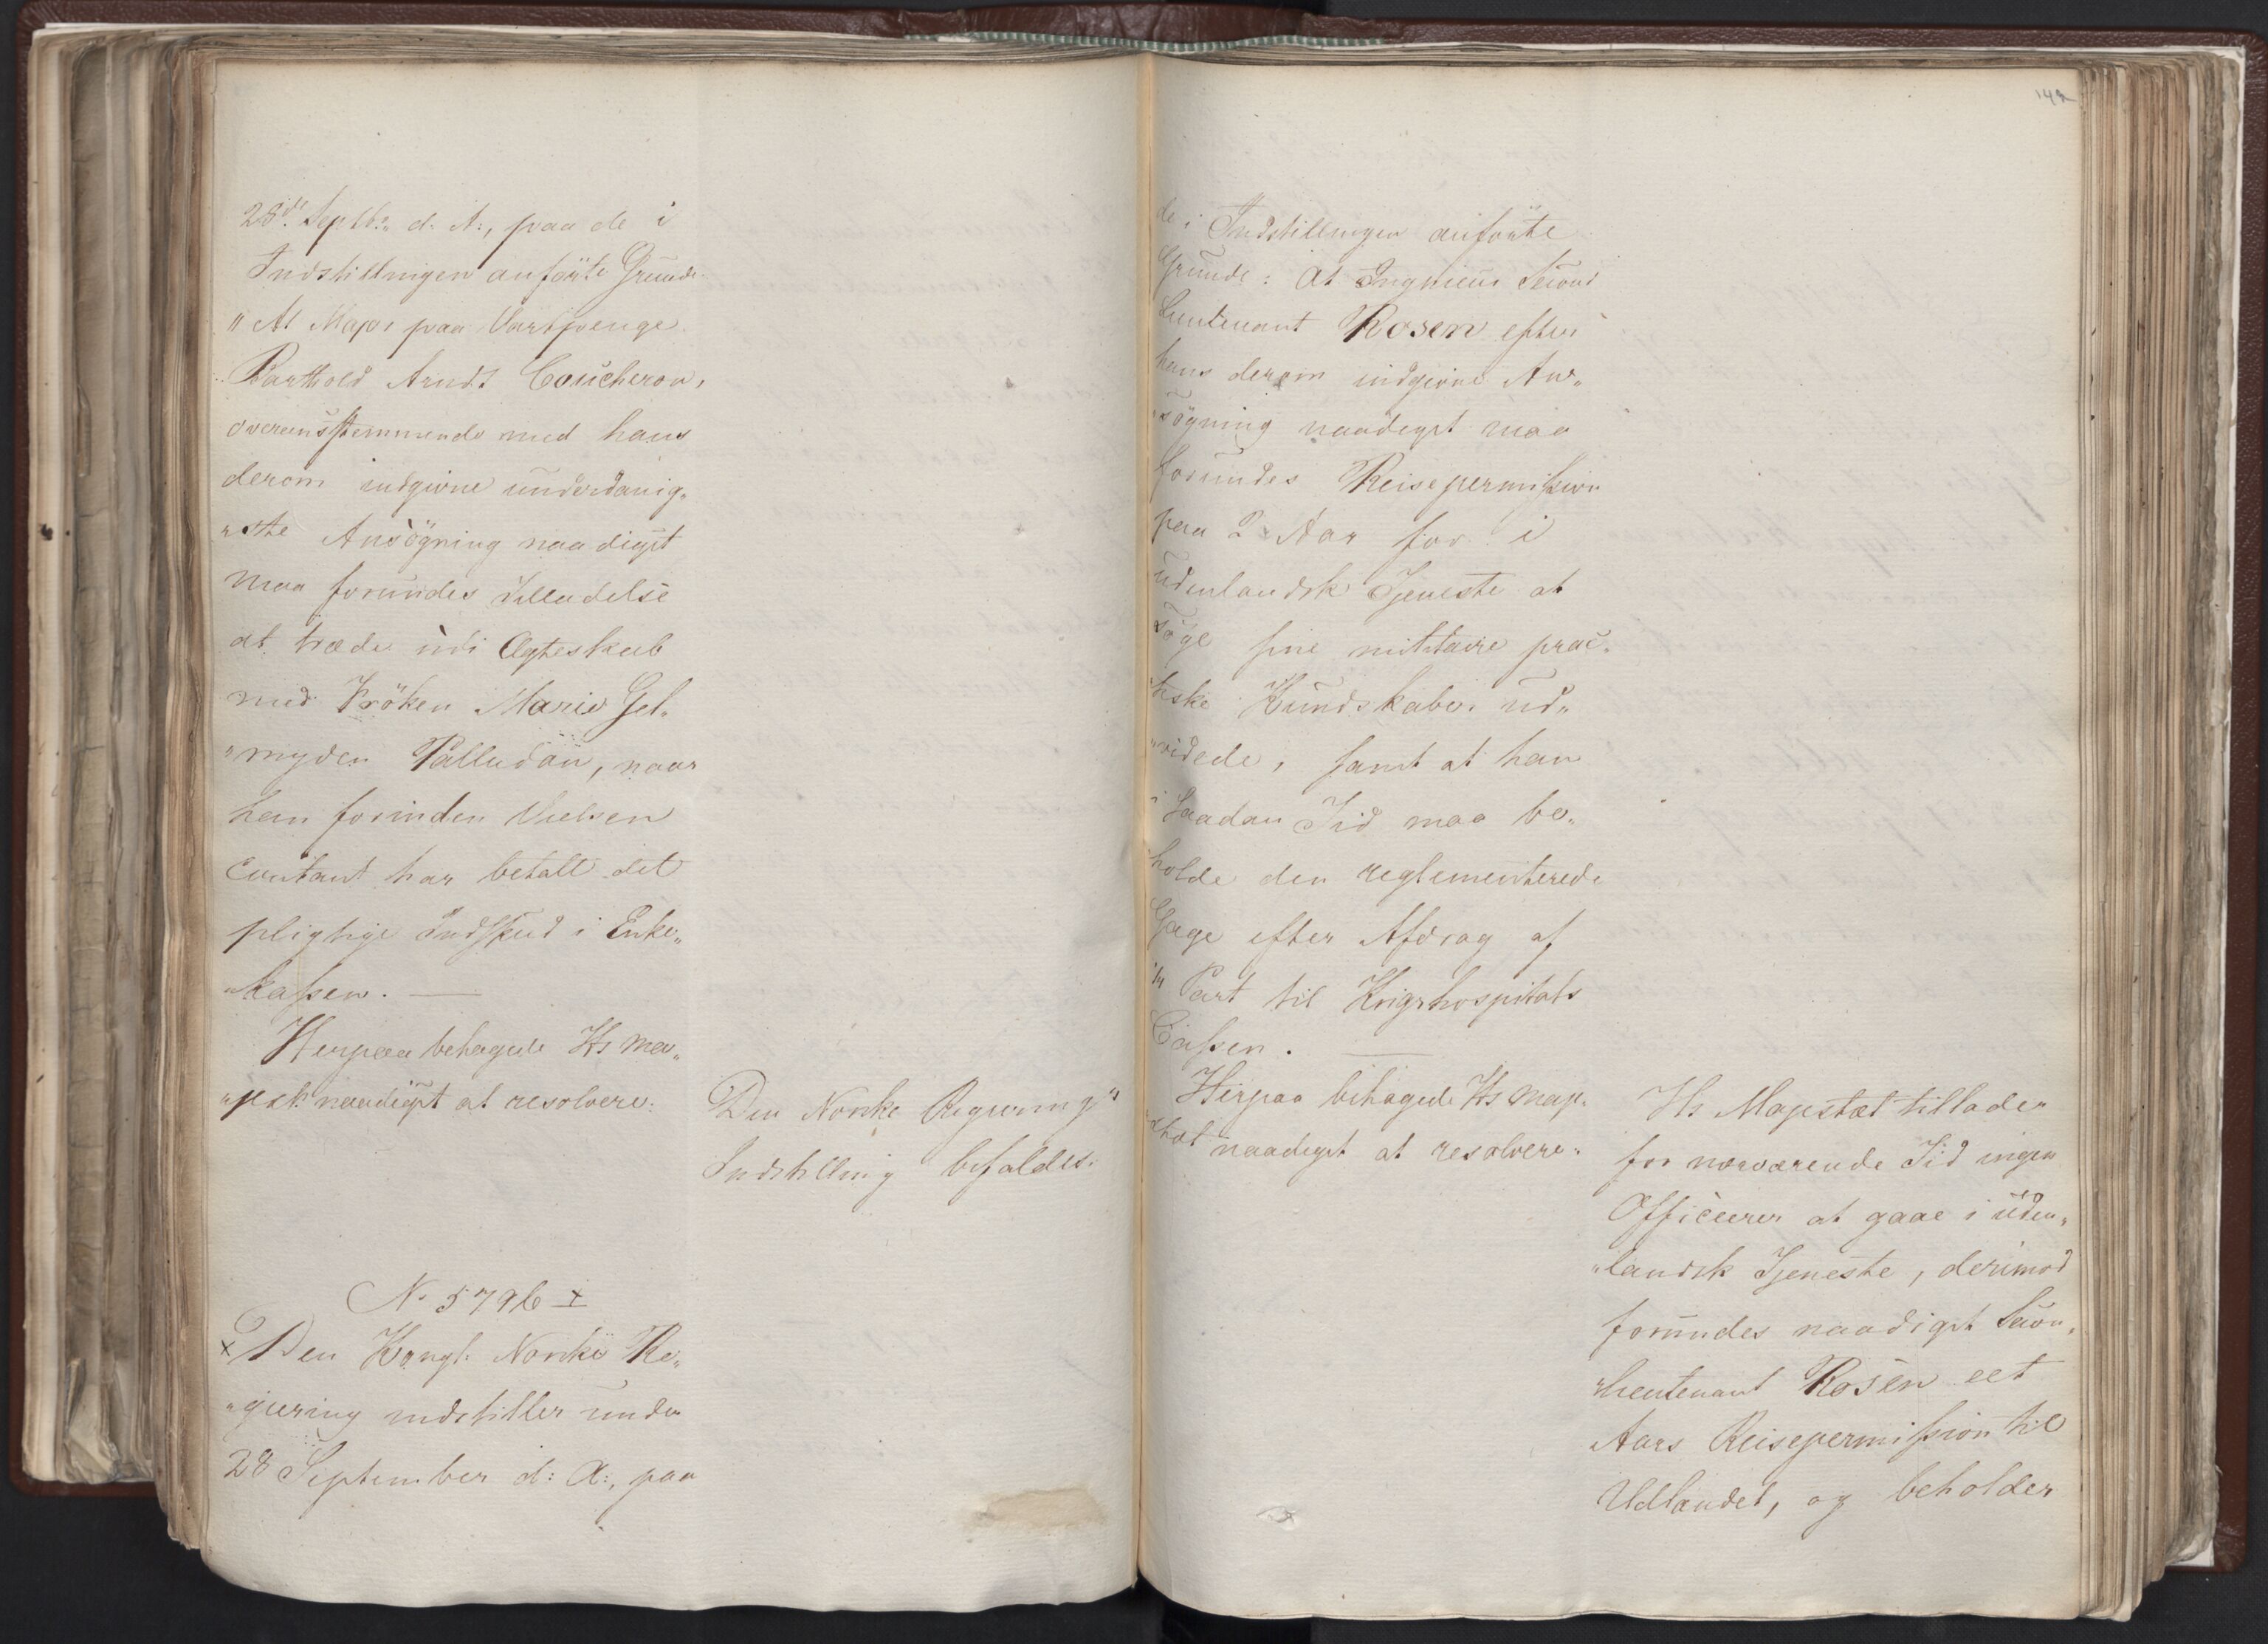 28de Septbr. d. A:, paa de i
Indstillingen anførte Grunde
"At Major paa Vartpenge
Barthold Arndt Coucheron,
overeensstemmende med hans
derom indgivne underdanig„
„ste Ansögning naadigst
maa forundes Tilladelse
at træde udi Ægteskab
med Fröken Marie Gel„
„myden Palludan, naar
han forinden Vielsen
contant har betalt det
pligtige Indskud i Enke„
„kassen. —
Herpaa behagede Hs Maj„
„estt. naadigst at resolvere:
Den Norske Regierings
Indstilling bifaldes.
N. 5796 +
+ Den Kongl. Norske Re„
„giering indstiller under
28 September d: A:, paa
142
de i Indstillingen anførte
Grunde: At Ingenieur Second
Lieutenant Rosen efter
hans derom indgivne An„
„sögning naadigst maa
forundes Reisepermission
paa 2 Aar for i
udenlandsk Tjeneste at
söge sine militaire prac„
„tiske Kundskaber ud„
„videde, samt at han
i saadan Tid maa be„
holde den reglementerede
Gage efter Afdrag af
Part til Krigshospitals
Cassen. —
Herpaa behagede Hs Maje„
„stæt naadigst at resolvere:
Hs Majestæt tillader
for nærværende Tid ingen
Officerer at gaae i uden„
„landsk Tjeneste, derimod
forundes naadigst Secon„
„lieutenant Rosen eet
Aars Reisepermission til
Udlandet, og beholder